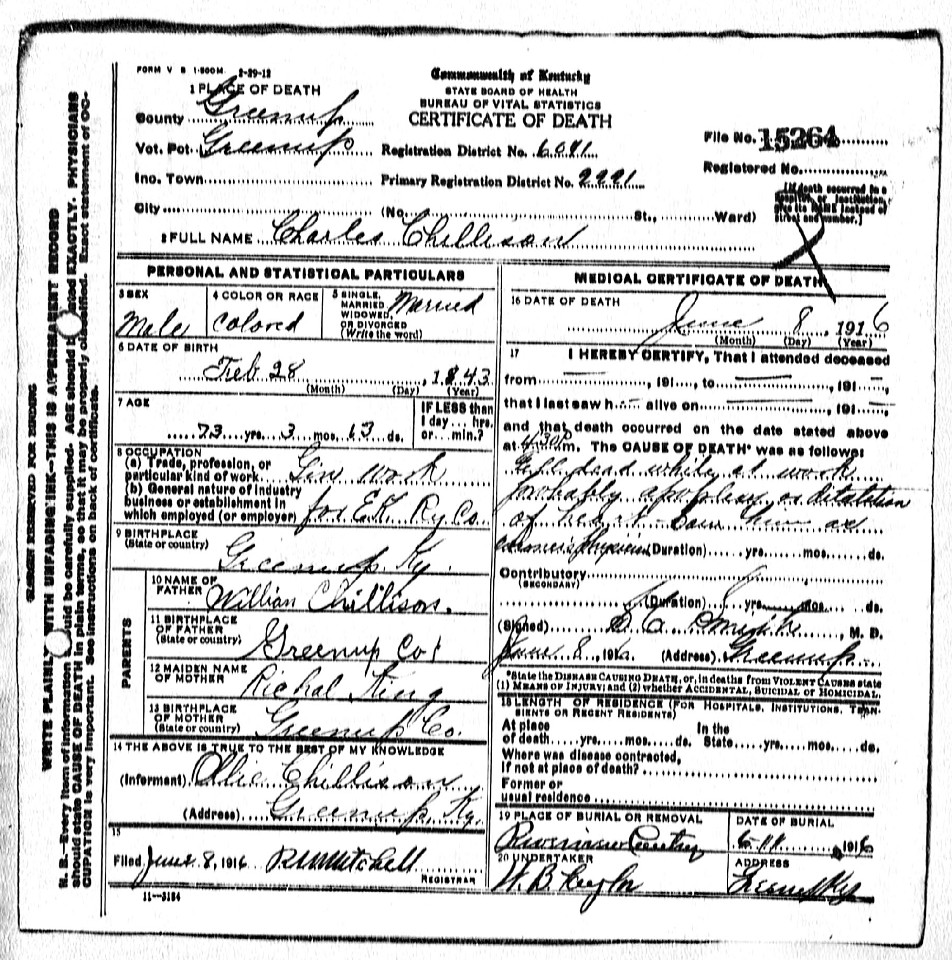 FORM V S 1-500M. 2-29-12
Commonwealth of Kentucky
STATE BOARD OF HEALTH
BUREAU OF VITAL STATISTICS
CERTIFICATE OF DEATH
1 PLACE OF DEATH
County Greenup
Vot. Pct. Greenup Registration District No. 6041
File No. 15264
Registered No.
Inc. Town Primary Registration District No. 2221
City (No. St., Ward)
[If death occurred in a
hospital or institution,
give its NAME instead of
street and number.]
2 FULL NAME Charles Chillison
PERSONAL AND STATISTICAL PARTICULARS
3 SEX
Male
4 COLOR OR RACE
Colored
5 SINGLE,
MARRIED,
WIDOWED,
OR DIVORCED
(Write the word)
Married
6 DATE OF BIRTH
Feb 28, 1843
(Month) (Day) (Year)
7 AGE
73 yrs. 3 mos. 13 ds.
IF LESS than
1 day... hrs.
or... min.?
8 OCCUPATION
(a) Trade, profession, or
particular kind of work Gen work
(b) General nature of industry
business or establishment in
which employed (or employer) for E.K. Ry Co.
9 BIRTHPLACE
(State or country)
Greenup Ky.
PARENTS
10 NAME OF
FATHER
William Chillison.
11 BIRTHPLACE
OF FATHER
(State or country)
Greenup Co
12 MAIDEN NAME
OF MOTHER
Richal King
13 BIRTHPLACE
OF MOTHER
(State or country)
Greenup Co.
14 THE ABOVE IS TRUE TO THE BEST OF MY KNOWLEDGE
(Informant) Ollie Chillison
(Address) Greenup Ky.
15
Filed June 8, 1916 R M Mitchell
REGISTRAR
11-3184
MEDICAL CERTIFICATE OF DEATH
16 DATE OF DEATH
June 8, 1916
(Month) (Day) (Year)
17 I HEREBY CERTIFY, That I attended deceased
from , 191 , to , 191
that I last saw h alive on , 191
and that death occurred on the date stated above
at 4:30 P m. The CAUSE OF DEATH* was as follows:
Fell dead while at work
probably apoplexy or dilatation
of heart. Saw him as
coroner's physician (Duration) yrs. mos. ds.
Contributory
(SECONDARY)
(Duration) yrs. mos. ds.
(Signed) , M. D.
June 8, 191 (Address) Greenup
*State the DISEASE CAUSING DEATH, or, in deaths from VIOLENT CAUSES state
(1) MEANS OF INJURY; and (2) whether ACCIDENTAL, SUICIDAL or HOMICIDAL.
18 LENGTH OF RESIDENCE (FOR HOSPITALS, INSTITUTIONS, TRANSIENTS OR RECENT RESIDENTS)
At place
of death yrs. mos. ds.
In the
State yrs. mos. ds.
Where was disease contracted,
if not at place of death?
Former or
usual residence
19 PLACE OF BURIAL OR REMOVAL
Riverview Cemetery
DATE OF BURIAL
6-11 1916
20 UNDERTAKER
W. B. Taylor
ADDRESS
Greenup Ky
MARGIN RESERVED FOR BINDING
WRITE PLAINLY WITH UNFADING INK—THIS IS A PERMANENT RECORD
N. B.—Every item of information should be carefully supplied. AGE should be stated EXACTLY. PHYSICIANS
should state CAUSE OF DEATH in plain terms, so that it may be properly classified. Exact statement of OC-
CUPATION is very important. See instructions on back of certificate.